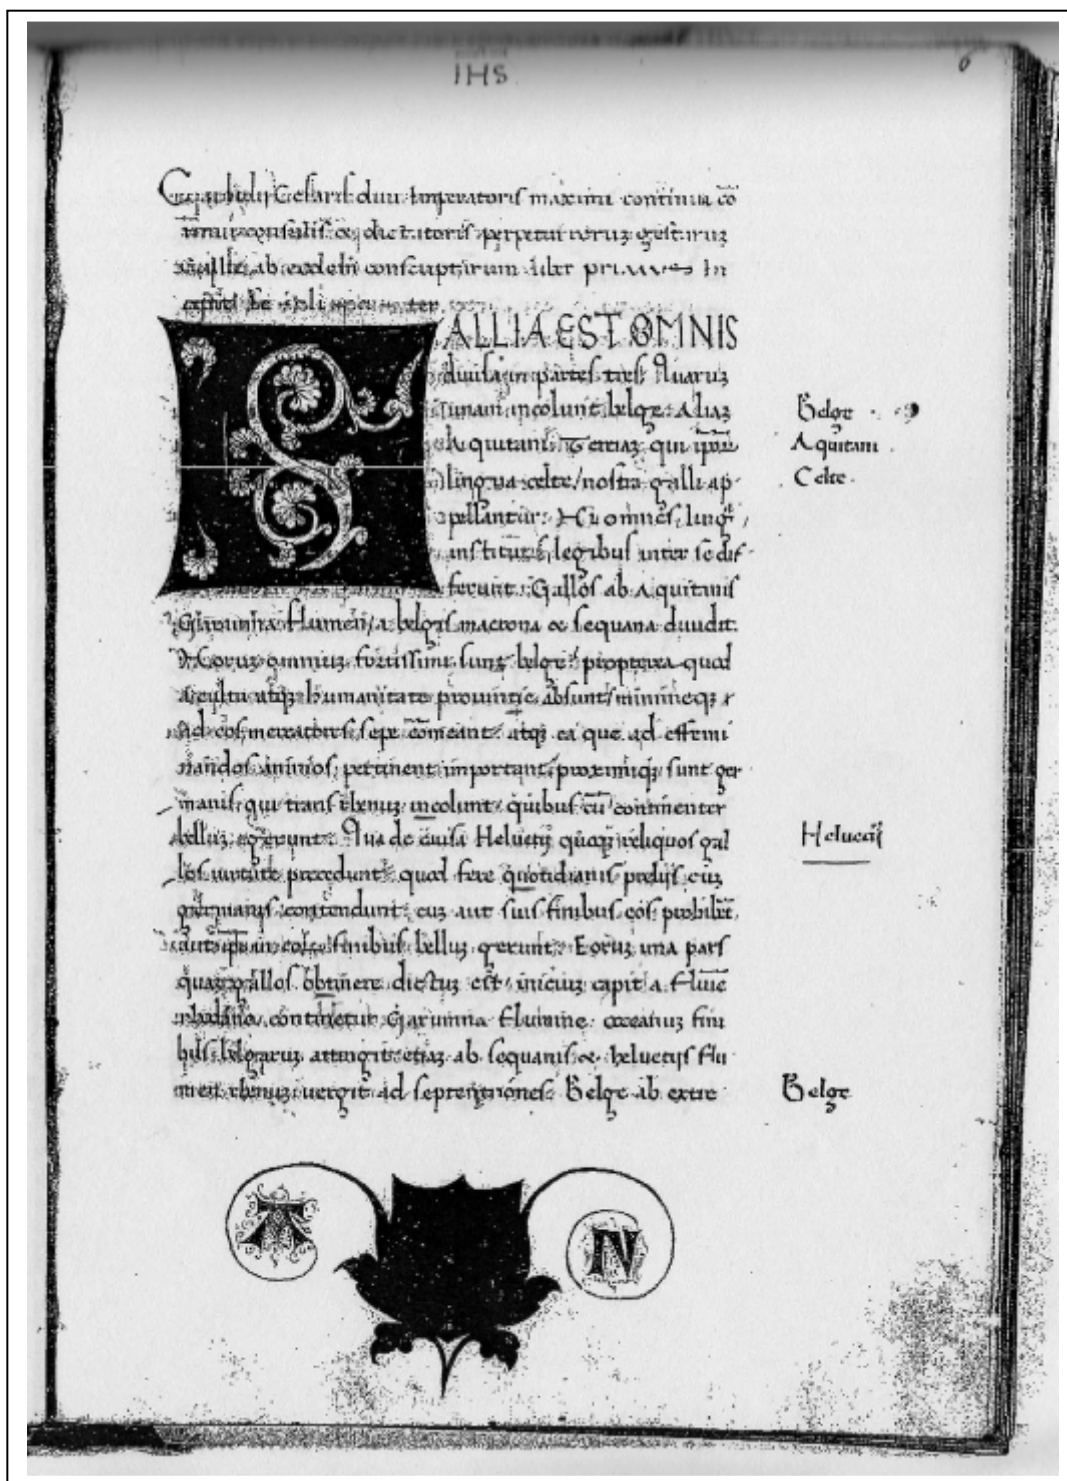 IHS
6
Cesaris divi Imperatoris maximi continua
consulis dictatoris perpetui rerum gestarum
ab eodem liber primus In
ALLIA EST OMNIS
divisa in partes tres Quarum
unam incolunt belge Aliam
Aquitani Tertiam qui
lingua celte nostra galli ap
pellantur Hi omnes
institutis legibus inter se dif
ferunt Gallos ab Aquitanis
flumen a belgis matrona & sequana dividit
Horum omnium fortissimi sunt belge propterea quod
a cultu atq3 humanitate provintie absunt minimeq3
ad eos mercatores sepe comeant atq3 ea que ad effemi
nandos animos pertinent important proximiq3 sunt ger
manis qui trans rhenum incolunt quibus cum continenter
bellum gerunt Qua de causa Helvetij quoq3 reliquos gal
los virtute precedunt quod fere quotidianis prelijs cum
germanis contendunt cum aut suis finibus eos prohibent
aut finibus bellum gerunt Eorum una pars
quam gallos obtinere dictum est inicium capit a flumine
rhodano continetur Garumna flumine oceanum fini
bus belgarum attingit etiam ab sequanis & helvetijs flu
men rhenum vergit ad septentriones Belge ab extre
Belge
Aquitani
Celte
Helvetij
Belge
A
N